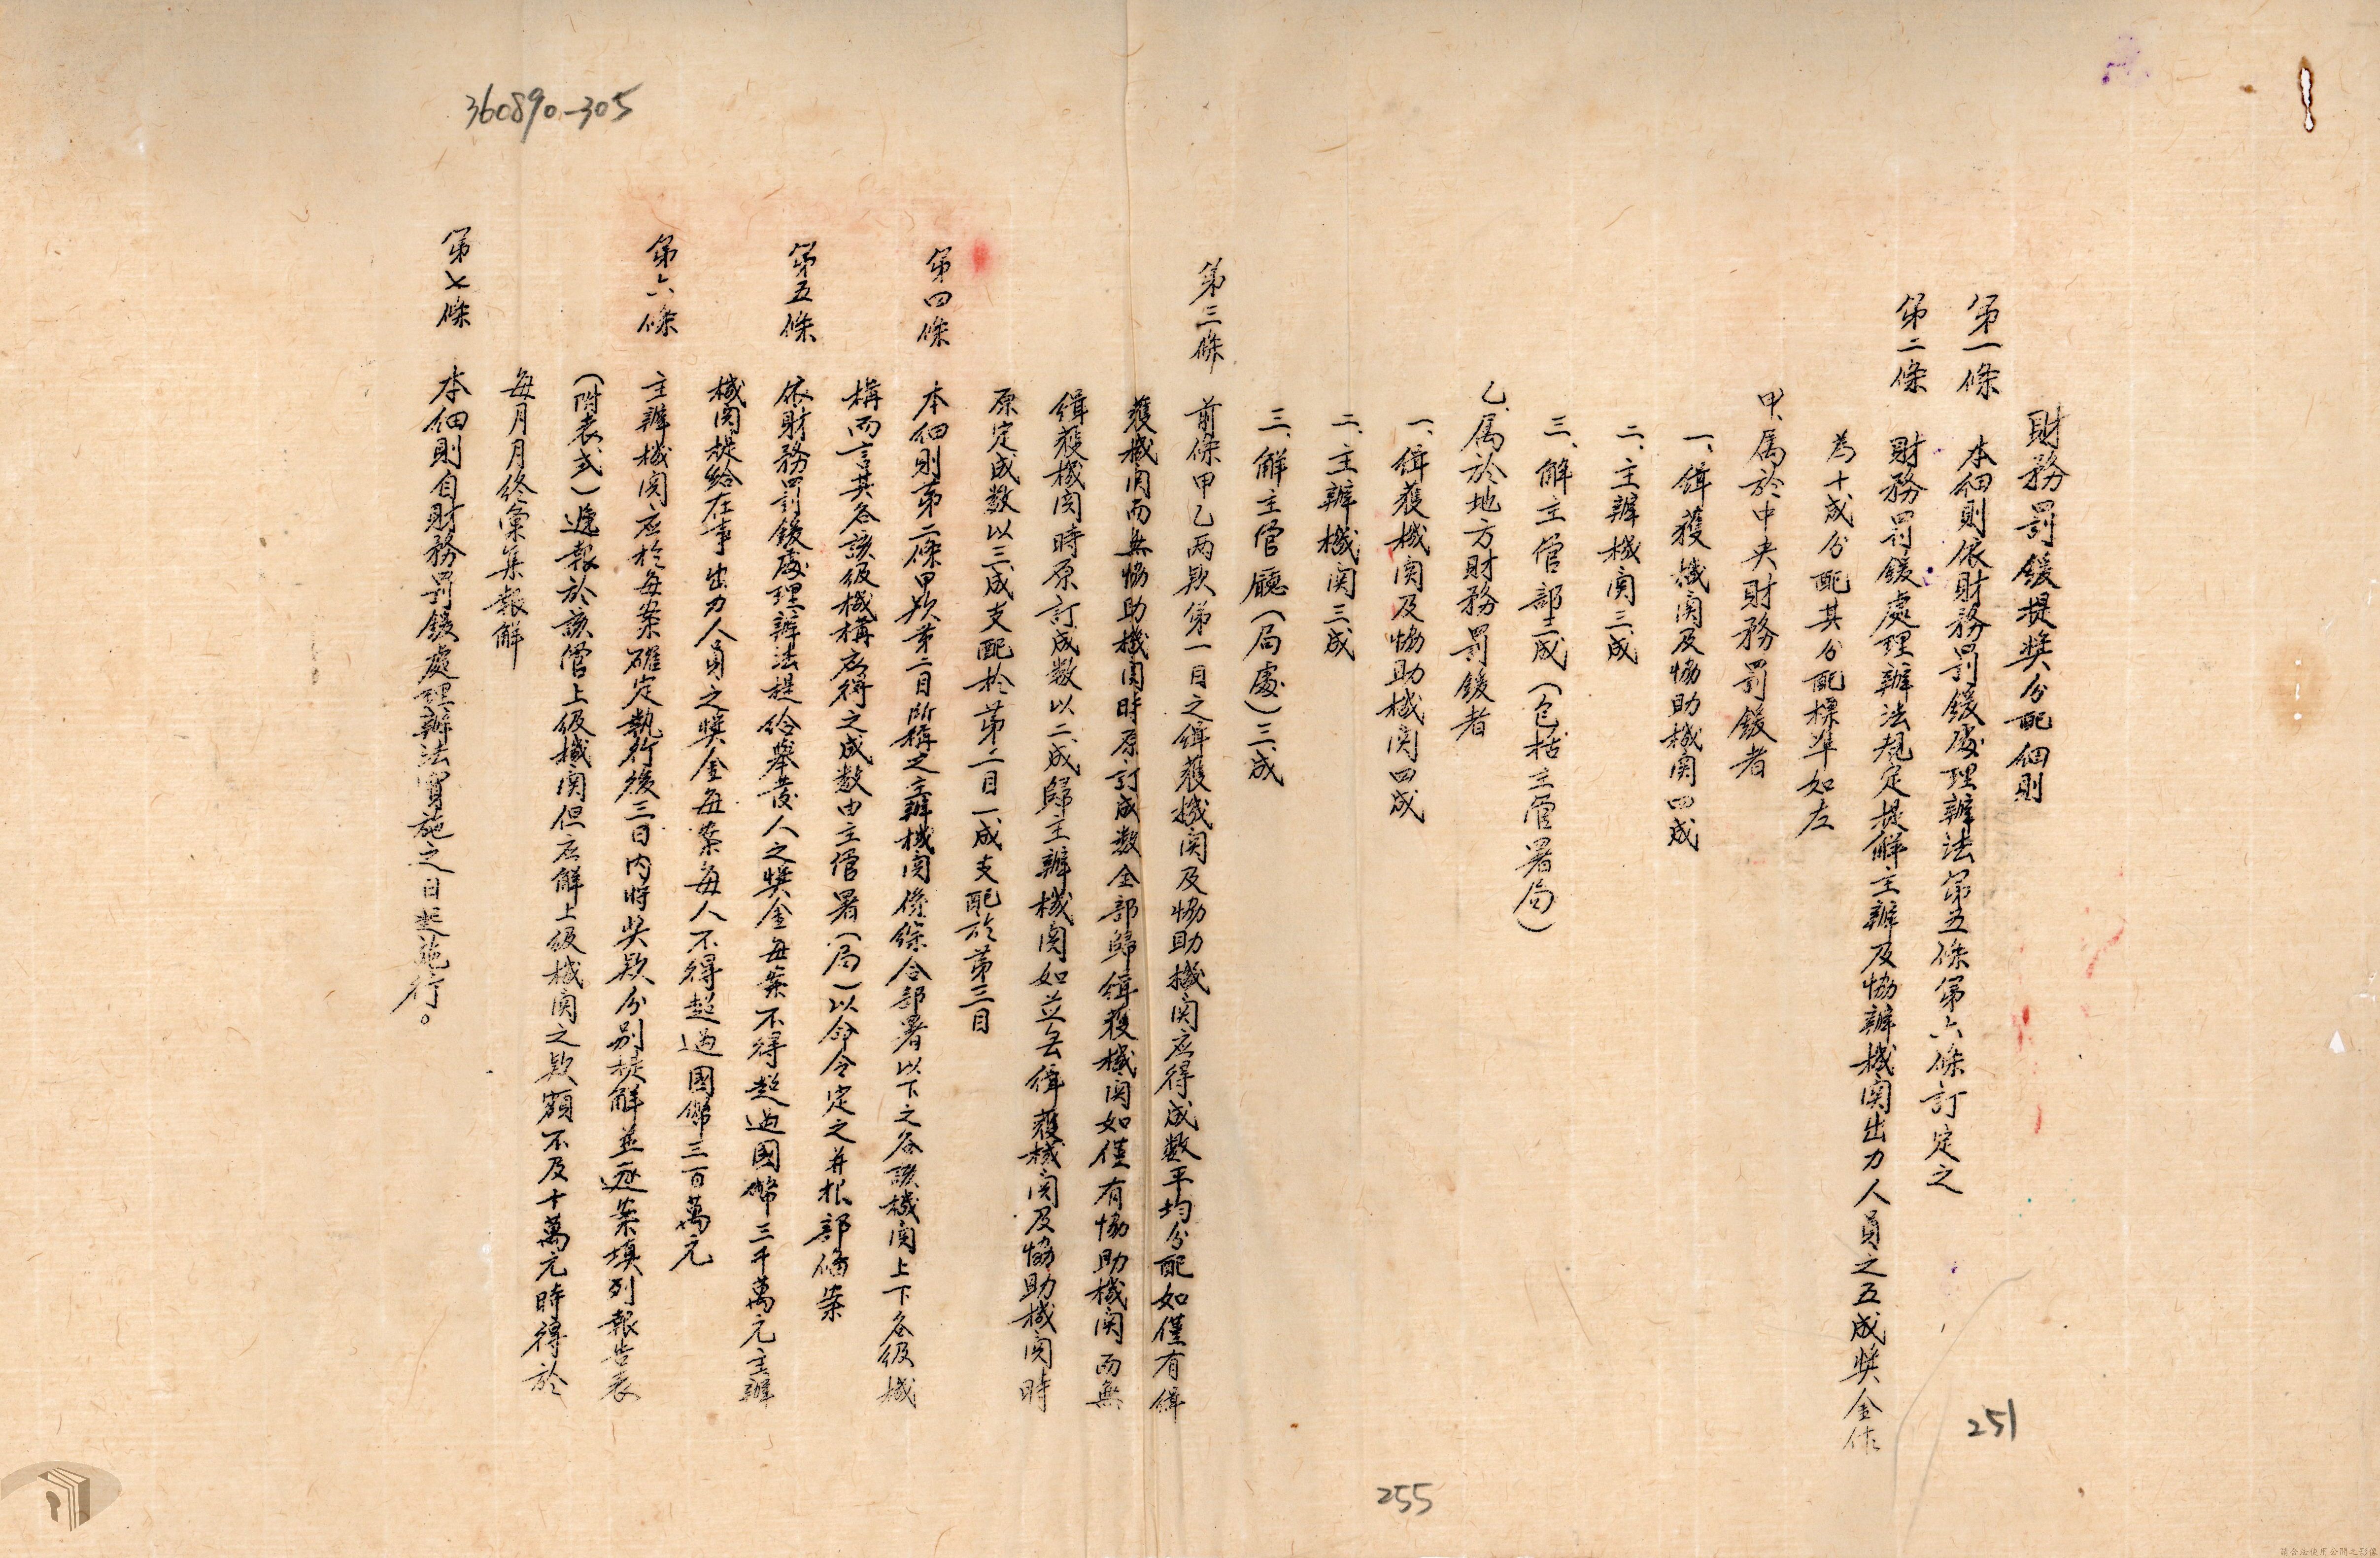 360890-305
財務罰鍰提獎分配細則
第一條 本細則依財務罰鍰處理辦法第五條第六條訂定之
第二條 財務罰鍰處理辦法規定提解主辦及協辦機関出力人員之五成獎金作
為十成分配其分配標準如左
甲、属於中央財務罰鍰者
一、緝獲機関及協助機関四成
二、主辦機関三成
三、解主管部三成(包括主管署局)
乙、属於地方財務罰鍰者
一、緝獲機関及協助機関四成
二、主辦機関三成
三、解主管廳(局處)三成
第三條 前條甲乙兩款第一目之緝獲機関及協助機関应得成數平均分配如僅有緝
獲機関而無協助機関時原訂成数全部歸緝獲機関如僅有協助機関而無
緝獲機関時原訂成数以二成歸主辦機関如並無緝獲機関及協助機関時
原定成数以三成支配於第二目一成支配於第三目
第四條 本細則第二條甲款第二目所稱之主辦機関係綜合部署以下之各該機関上下各級機
構而言其各該級機構应得之成数由主管署(局)以命令定之并报部備案
第五條 依財務罰鍰處理辦法提给舉發人之獎金每案不得超過國幣三千萬元主辦
機関提給在事出力人員之獎金每案每人不得超過國幣三百萬元
第六條 主辦機関应於每案確定執行後三日内將奖款分别提解並逐案填列報告表
(附表式)遞報於該管上級機関但应解上級機関之款額不及十萬元時得於
每月月终彙集報解
第七條 本細則自財務罰鍰處理辦法實施之日起施行。
251
255
請合法使用公開之影像